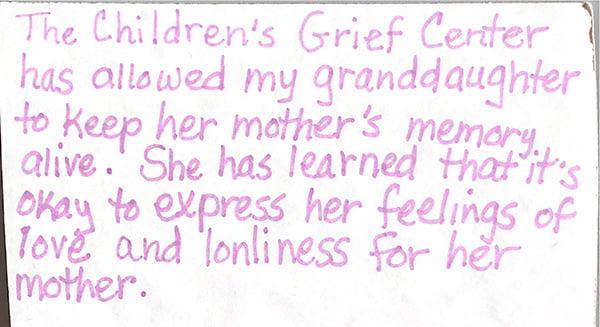 The Children's Grief Center
has allowed my granddaughter
to keep her mother's memory
alive. She has learned that it's
okay to express her feelings of
love and lonliness for her
mother.